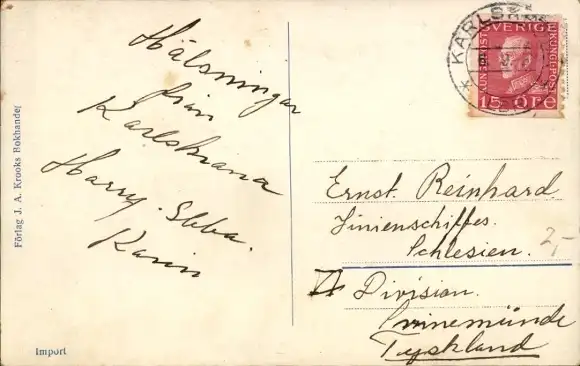 Hälsningar
från
Karlskrona
Harry. Ebba.
Karin
KARLSK
SVERIGE
KUNGL-POST
KUNGL-POST
15 ÖRE
Ernst. Reinhard.
Linienschiffes.
Schlesien.
2,-
Division.
Swinemünde
Tyskland
Förlag J. A. Krooks Bokhandel
Import